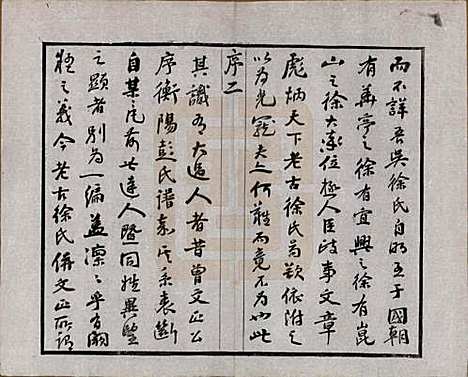 而不詳吾吳徐氏自明至于國朝
有華亭之徐有宜興之徐有崑
山之徐大家位極人臣政事文章
彪炳天下老古徐氏苟欲依附之
以為光寵夫亦何難而竟不為也此
序二
其識為大過人者昔曾文正公
序衡陽彭氏譜嘉其系表斷
自某
前此達人暨同姓異望
之顯者別為一編蓋凜凜乎有嗣
之義今老古徐氏併文正所謂